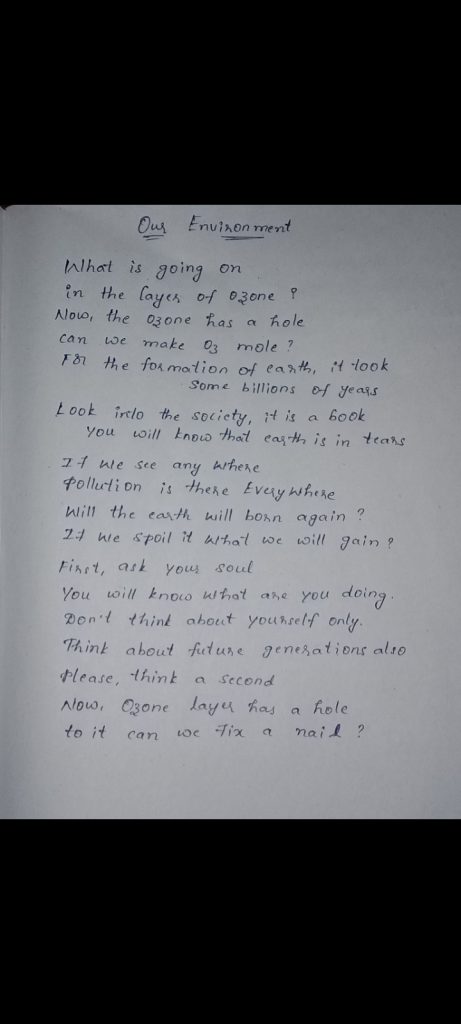 Our Environment
What is going on
in the layer of ozone ?
Now, the ozone has a hole
can we make O3 mole ?
For the formation of earth, it took
some billions of years
Look into the society, it is a book
You will know that earth is in tears
If we see any where
Pollution is there Everywhere
Will the earth will born again ?
If we spoil it what we will gain ?
First, ask your soul
You will know what are you doing.
Don't think about yourself only.
Think about future generations also
Please, think a second
Now, Ozone layer has a hole
to it can we Fix a nail ?